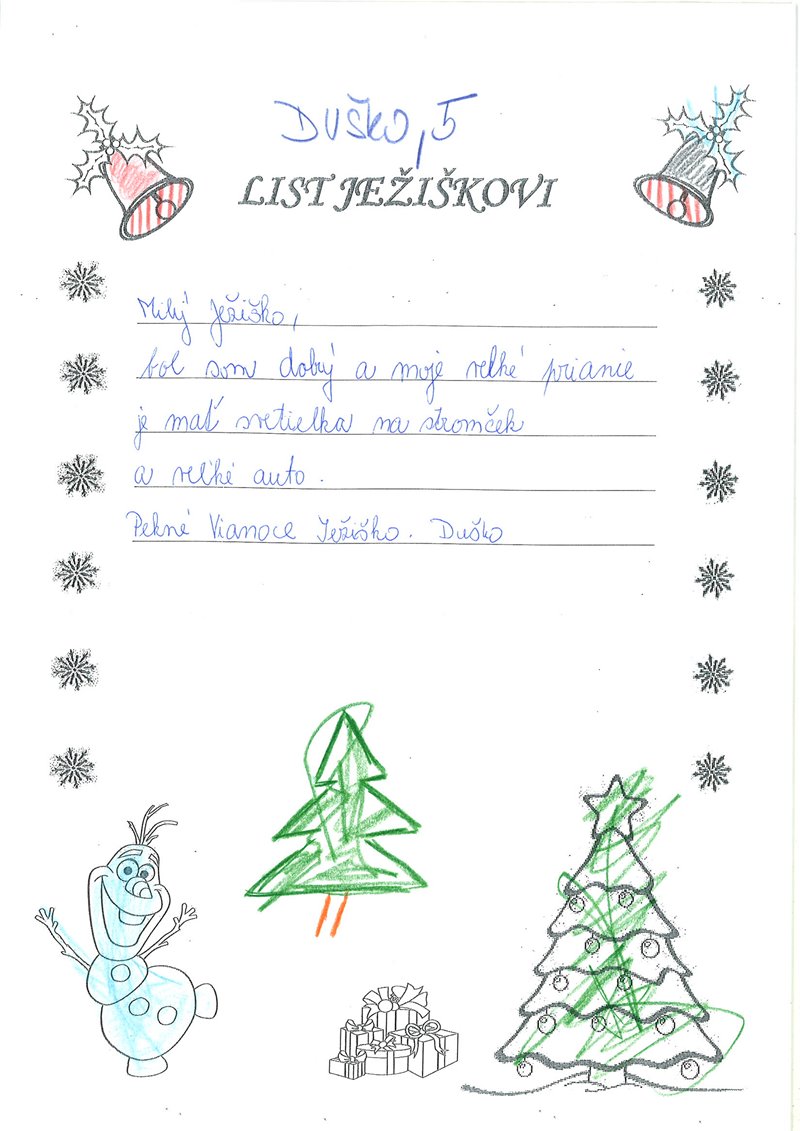 Duško, 5
LIST JEŽIŠKOVI
Milý Ježiško,
bol som dobrý a moje veľké prianie
je mať svetielka na stromček
a veľké auto.
Pekné Vianoce Ježiško. Duško